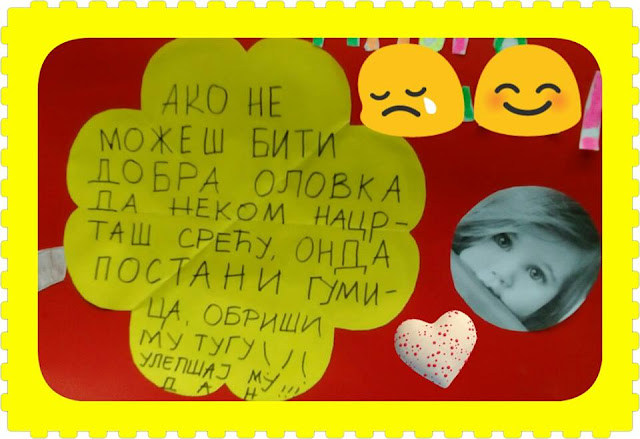 АКО НЕ
МОЖЕШ БИТИ
ДОБРА ОЛОВКА
ДА НЕКОМ НАЦР-
ТАШ СРЕЋУ, ОНДА
ПОСТАНИ ГУМИ-
ЦА, ОБРИШИ
МУ ТУГУ,,,
УЛЕПШАЈ МУ
ДАН!!!